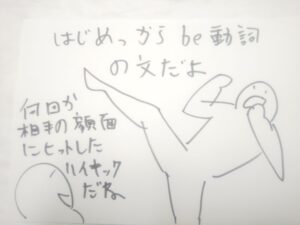 はじめっからbe動詞
の文だよ
何回か
相手の顔面
にヒットした
ハイキック
だね